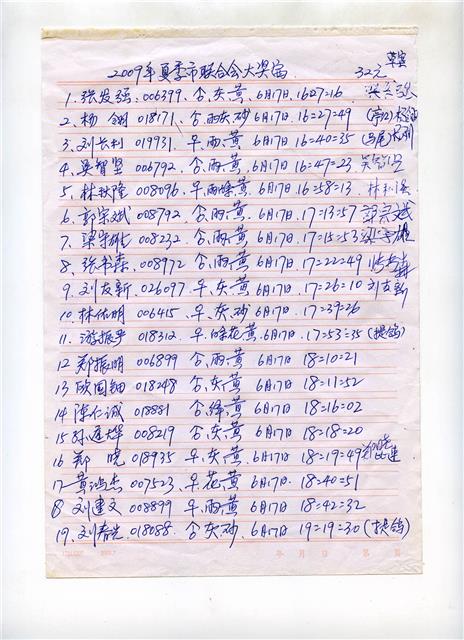 2009年夏季市联合会大奖宙 草宙
32元
1. 张发强: 006399、舍、灰、黄 6月17日、16=27=16
2. 杨 翎 018171、舍、雨灰、砂 6月17日、16=27=49
3. 刘长利 019931、早、雨、黄 6月17日、16=40=35
4. 吴智坚 006792、舍、雨、黄 6月17日、16=47=23、吴智坚
5. 林秋隆 008096、早、雨绛、黄、6月17日 16=58=13、
6. 郭宗斌 008792 舍、雨、黄、6月17日、17=13=57 郭宗斌
7. 梁宇彬 008232 舍、雨、黄、6月17日、17=15=53
8. 张书森、008972 舍、雨、黄、6月17日、17=22=49
9. 刘友新、026097、早、灰、黄、6月17日、17=26=10 刘友新
10. 林佑明 006415 早、灰、砂、6月17日、17=39=26
11. 游振声 018312、早、绛花、黄、6月17日、17=53=35 (提鸽)
12 郑振明 006899 舍、雨、黄 6月17日 18=10=21
13 欧国钿 018248 舍、灰、黄 6月17日 18=11=52
14 陈仁诚 018881 舍、绛、黄 6月17日、18=16=02
15 孙逢烨 008219 舍、灰、黄、6月17日、18=18=20
16 郑 晓 018935 早、灰、黄 6月17日、18=19=49
17 黄鸿杰 007523、早、花、黄 6月17日、18=40=51
18 刘建文 008899 早、雨、黄 6月17日、18=42=32
19. 刘春光、018088、舍、灰、砂、6月17日、19=19=30 (提鸽)
年 月 日 第 页